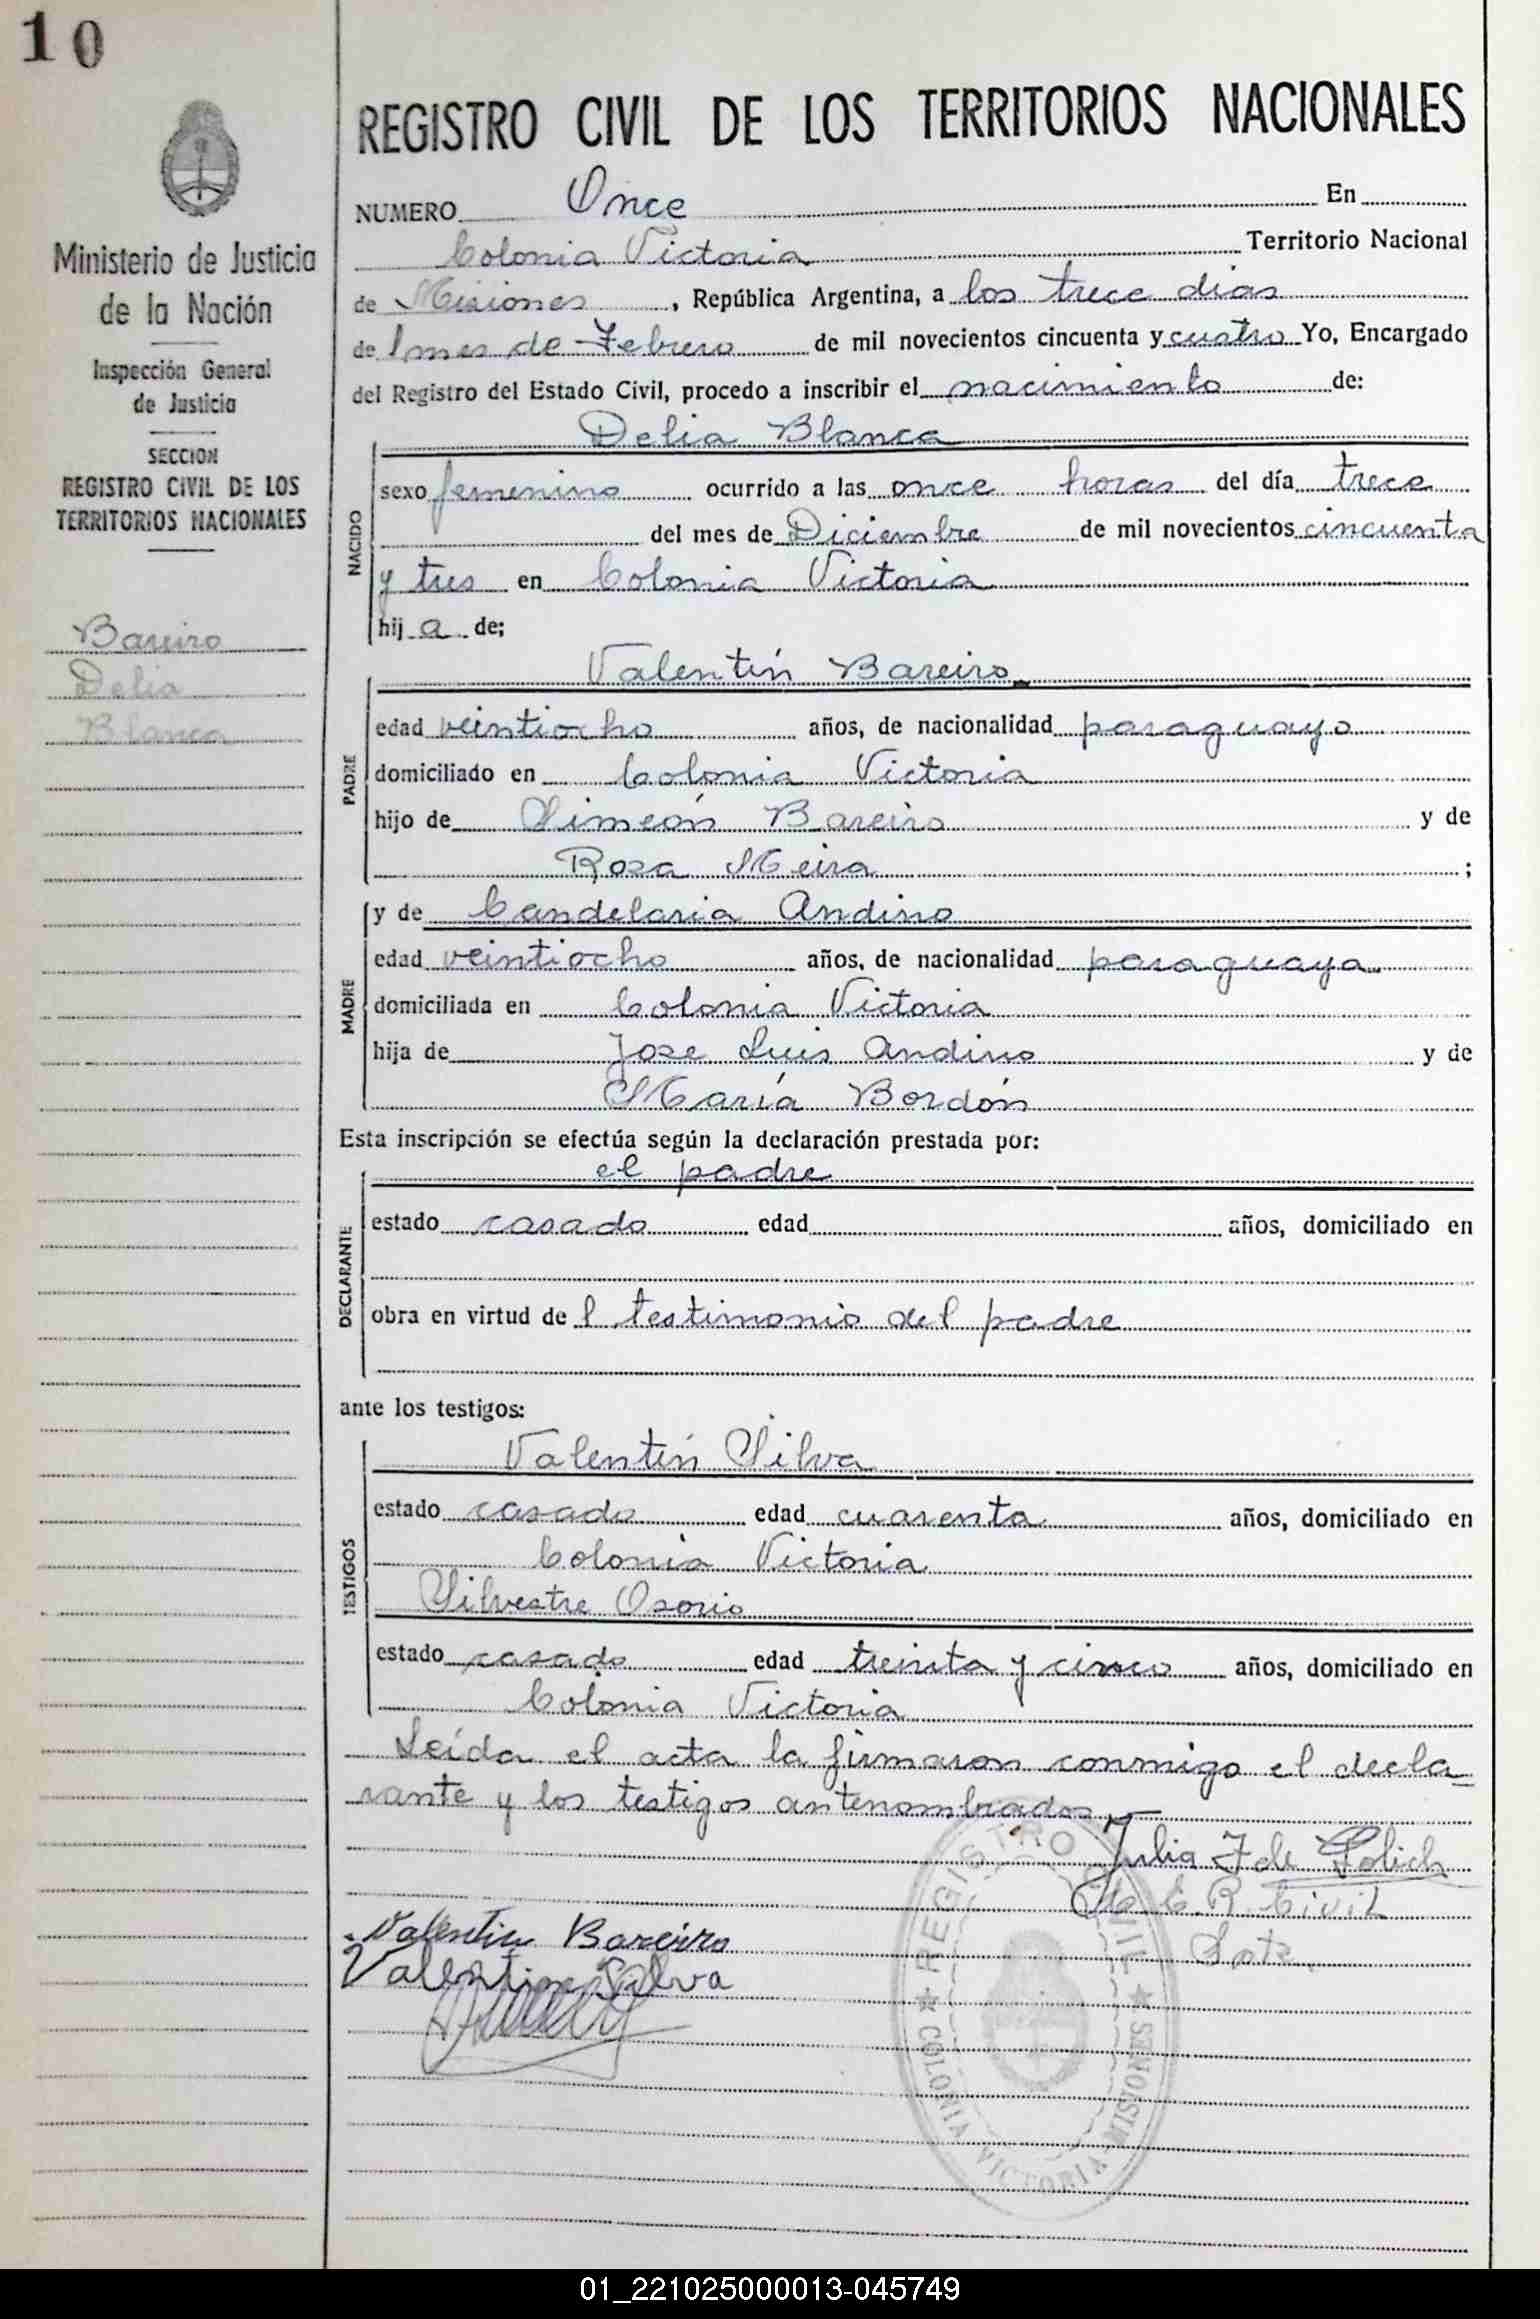 10
Ministerio de Justicia
de la Nación
Inspección General
de Justicia
SECCION
REGISTRO CIVIL DE LOS
TERRITORIOS NACIONALES
Bareiro
Delia
Blanca
REGISTRO CIVIL DE LOS TERRITORIOS NACIONALES
NUMERO Once En
Colonia Victoria Territorio Nacional
de Misiones, República Argentina, a los trece dias
del mes de Febrero de mil novecientos cincuenta y cuatro Yo, Encargado
del Registro del Estado Civil, procedo a inscribir el nacimiento de:
NACIDO
Delia Blanca
sexo femenino ocurrido a las once horas del día trece
del mes de Diciembre de mil novecientos cincuenta
y tres en Colonia Victoria
hija de;
PADRE
Valentín Bareiro
edad veintiocho años, de nacionalidad paraguayo
domiciliado en Colonia Victoria
hijo de Simeón Bareiro y de
Rosa Meira ;
MADRE
y de Candelaria Andino
edad veintiocho años, de nacionalidad paraguaya
domiciliada en Colonia Victoria
hija de Jose Luis Andino y de
María Bordón
Esta inscripción se efectúa según la declaración prestada por:
DECLARANTE
el padre
estado casado edad años, domiciliado en
obra en virtud del testimonio del padre
ante los testigos:
TESTIGOS
Valentín Silva
estado casado edad cuarenta años, domiciliado en
Colonia Victoria
Silvestre Osorio
estado casado edad treinta y cinco años, domiciliado en
Colonia Victoria
Leída el acta la firmaron conmigo el decla-
rante y los testigos antenombrados
Julia F de
R. Civil
Valentin Bareiro
Valentin Silva
REGISTRO CIVIL
COLONIA VICTORIA-MISIONES
01_221025000013-045749